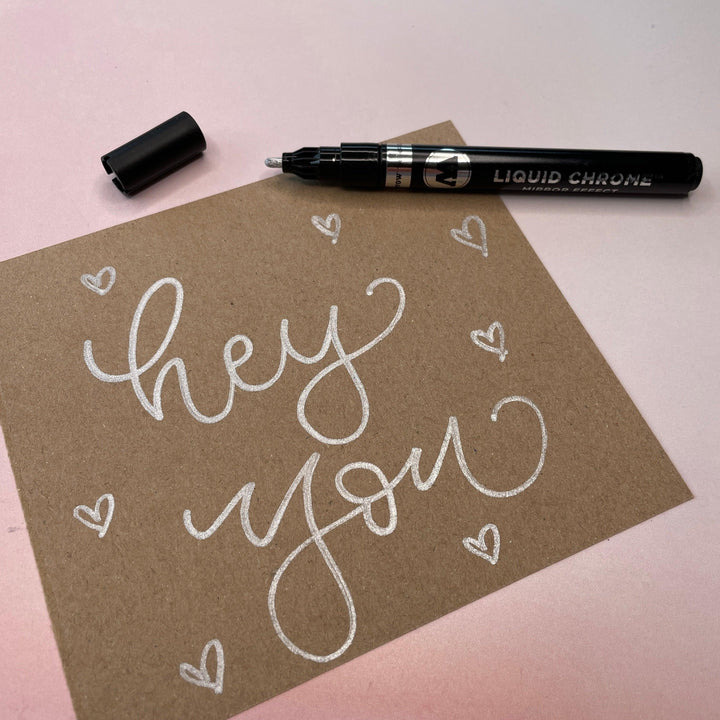 LIQUID CHROME
MIRROR EFFECT
hey
you